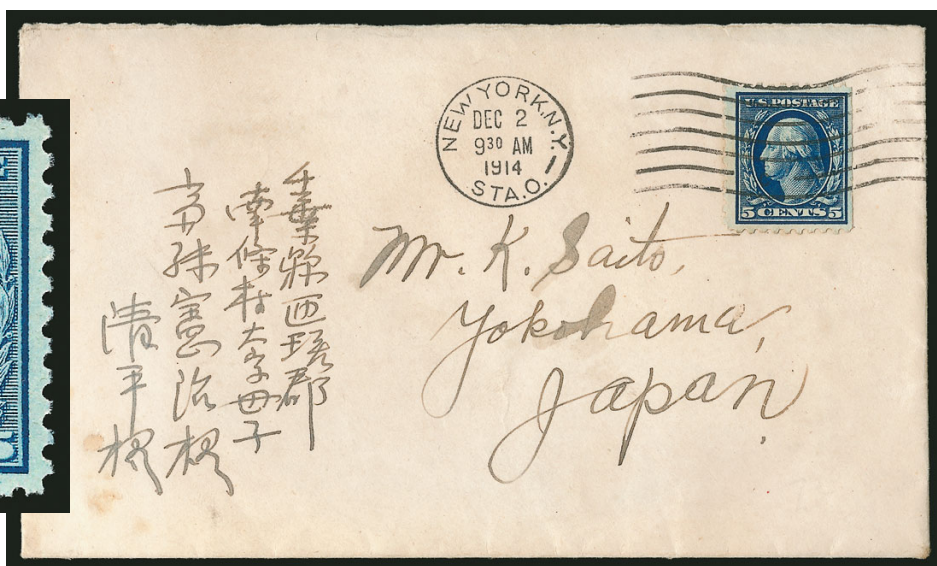 NEW YORK, N.Y.
DEC 2
9 30 AM
1914
STA.O.
U.S. POSTAGE
5 CENTS 5
Mr. K. Saito,
Yokohama,
Japan.
千葉縣匝瑳郡
南條村大字母子
憲治様
清平様